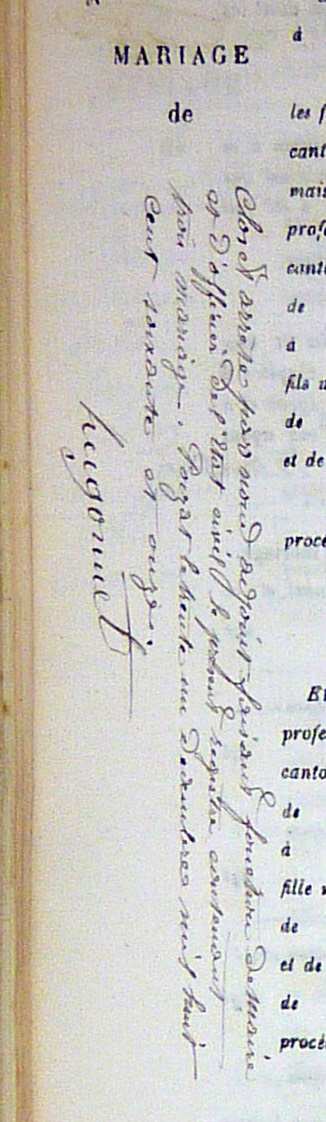 MARIAGE
de
Clos et arrêté par nous adjoint faisant fonction de Maire
et d'officier de l'état civil le présent registre contenant
trois mariages. Pouzat le trente un Decembre mil huit
cent soixante et onze.
hugonnet
à
les f
cant
mais
prof
canto
de
à
fils
de
et de
procé
Et
profe
canto
de
à
fille
de
et de
de
procé